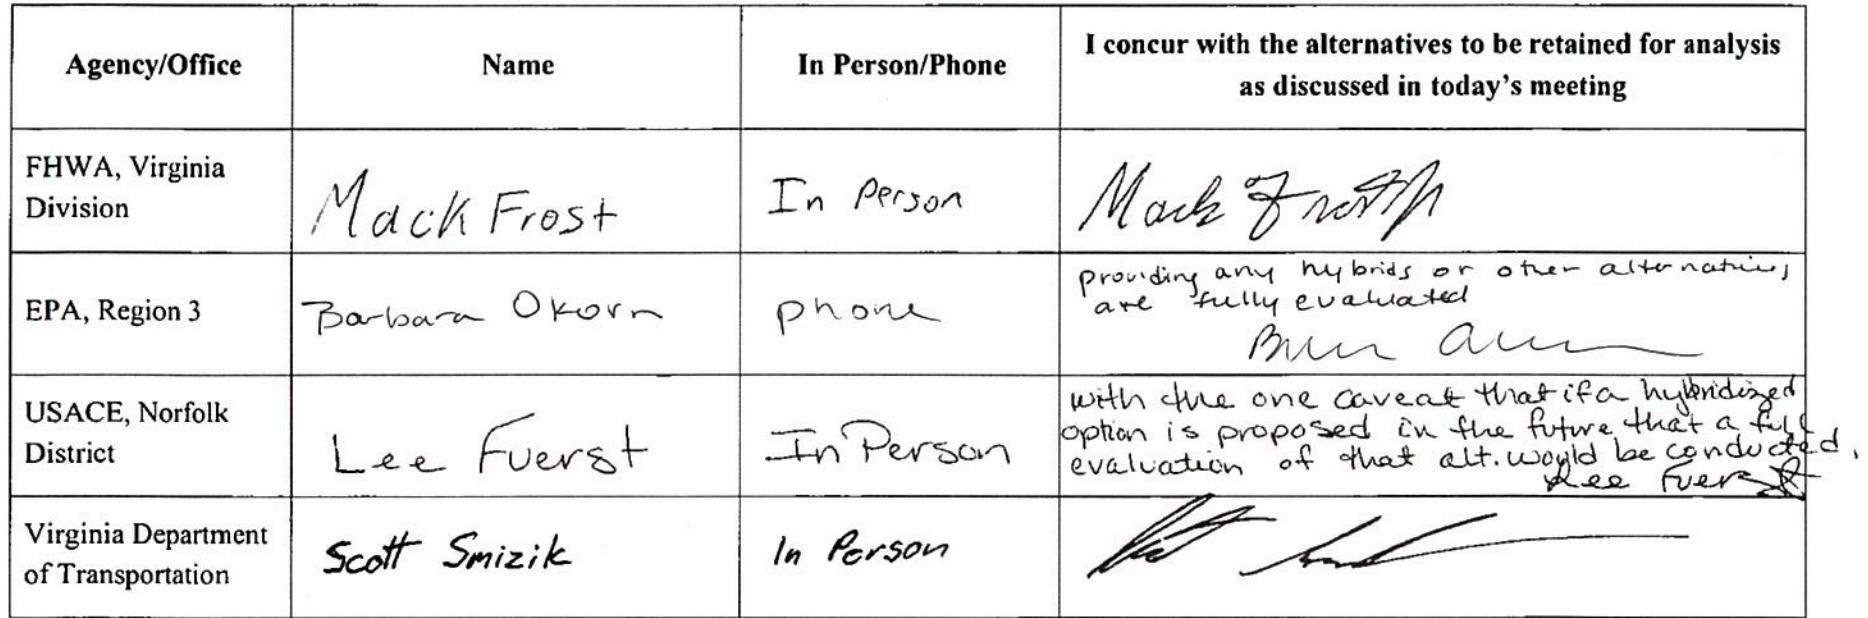 Agency/Office
Name
In Person/Phone
I concur with the alternatives to be retained for analysis
as discussed in today's meeting
FHWA, Virginia
Division
Mack Frost
In Person
Mack Frost
EPA, Region 3
Barbara Okorn
phone
providing any hybrids or other alternatives
are fully evaluated
USACE, Norfolk
District
Lee Fuerst
In Person
with the one caveat that if a hybridized
option is proposed in the future that a full
evaluation of that alt. would be conducted.
Lee Fuerst
Virginia Department
of Transportation
Scott Smizik
In Person